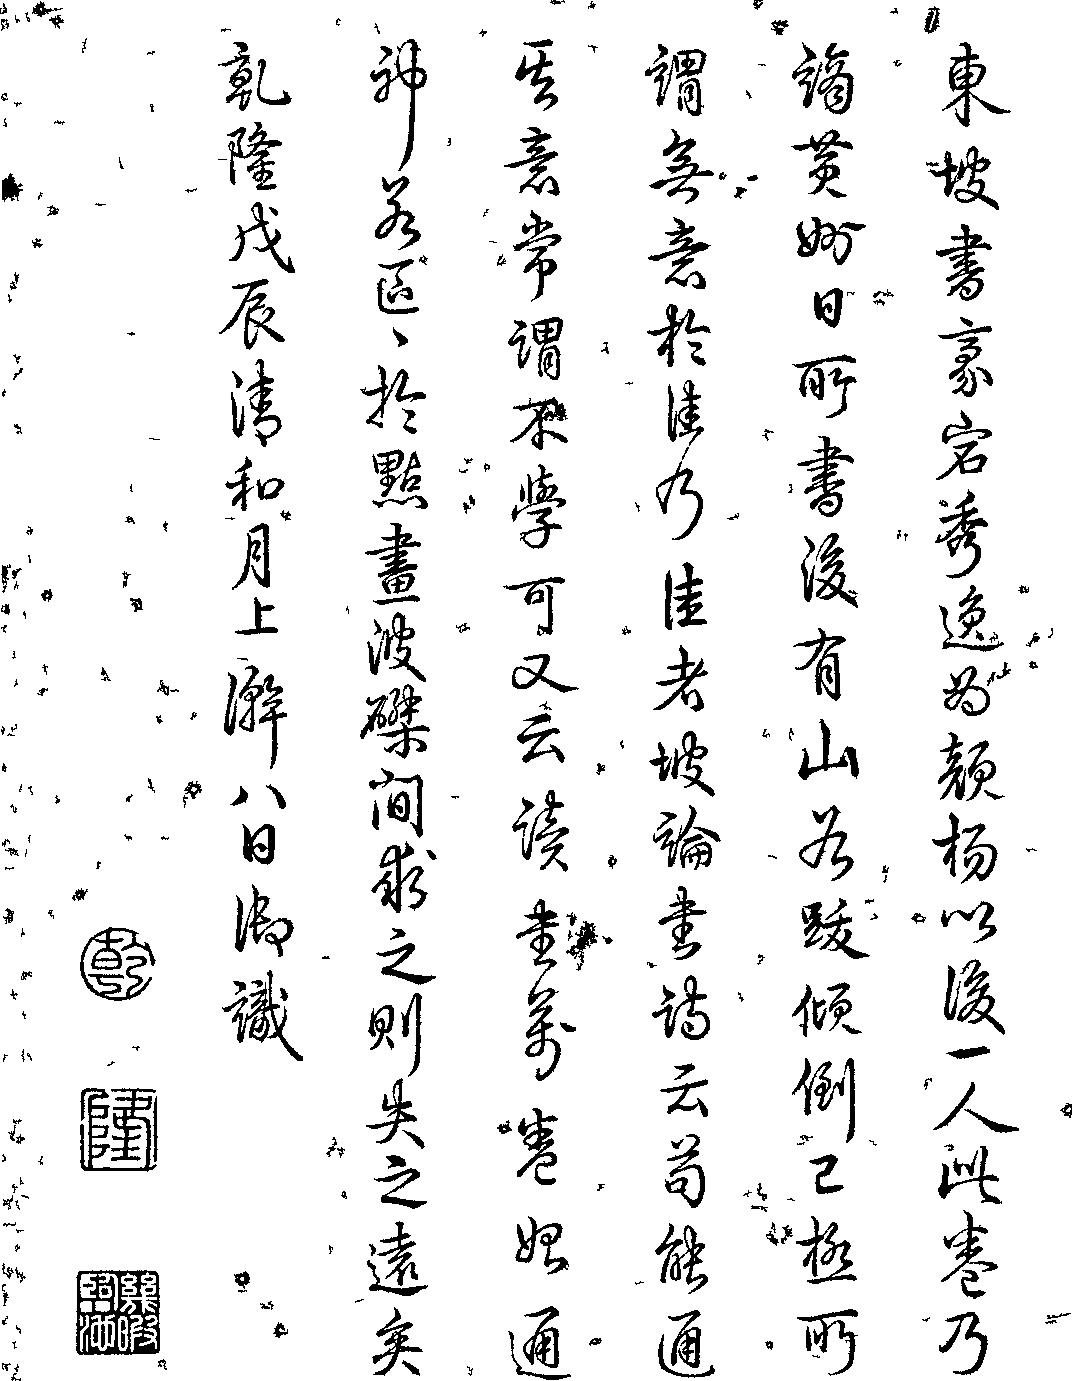 東坡書豪宕秀逸為顏楊以後一人此卷乃
謫黃州日所書後有山谷跋傾倒已極所
謂無意於佳乃佳者坡論書詩云苟能通
其意常謂不學可又云讀書萬卷始通
神若區〻於點畫波磔間求之則失之遠矣
乾隆戊辰清和月上澣八日御識
乾
隆